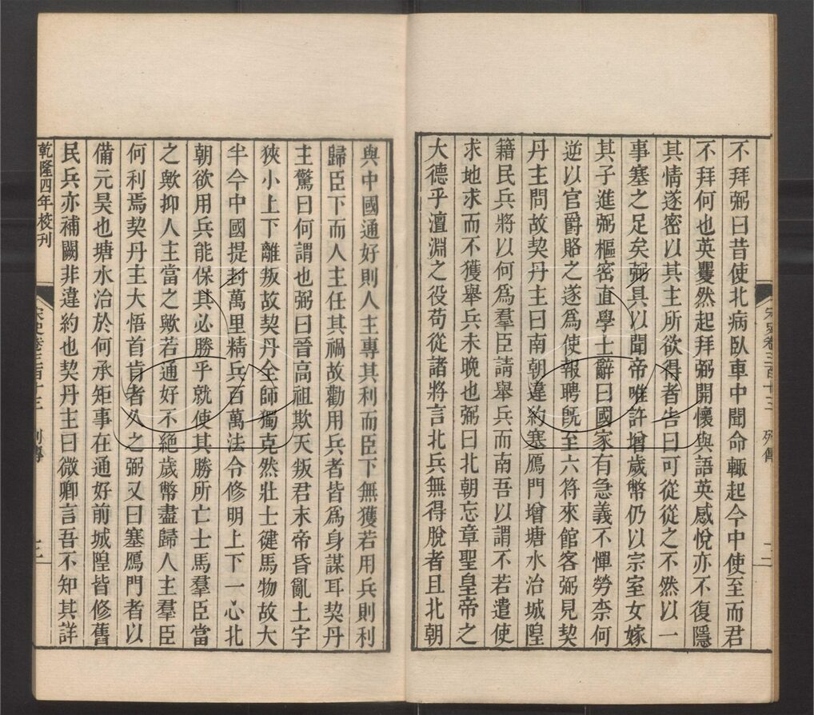 不拜弼曰昔使北病臥車中聞命輒起今中使至而君
不拜何也英矍然起拜弼開懷與語英感悅亦不復隱
其情遂密以其主所欲得者告曰可從從之不然以一
事塞之足矣弼具以聞帝唯許增歲幣仍以宗室女嫁
其子進弼樞密直學士辭曰國家有急義不憚勞柰何
逆以官爵賂之遂爲使報聘旣至六符來館客弼見契
丹主問故契丹主曰南朝違約塞鴈門增塘水治城隍
籍民兵將以何爲羣臣請舉兵而南吾以謂不若遣使
求地求而不獲舉兵未晚也弼曰北朝忘章聖皇帝之
大德乎澶淵之役苟從諸將言北兵無得脫者且北朝
宋史卷三百十三 列傳 二
與中國通好則人主專其利而臣下無獲若用兵則利
歸臣下而人主任其禍故勸用兵者皆爲身謀耳契丹
主驚曰何謂也弼曰晉高祖欺天叛君末帝昏亂土宇
狹小上下離叛故契丹全師獨克然壯士健馬物故大
半今中國提封萬里精兵百萬法令修明上下一心北
朝欲用兵能保其必勝乎就使其勝所亡士馬羣臣當
之歟抑人主當之歟若通好不絕歲幣盡歸人主羣臣
何利焉契丹主大悟首肯者久之弼又曰塞鴈門者以
備元昊也塘水治於何承矩事在通好前城隍皆修舊
民兵亦補闕非違約也契丹主曰微卿言吾不知其詳
乾隆四年校刊
宋史卷三百十三 列傳 三